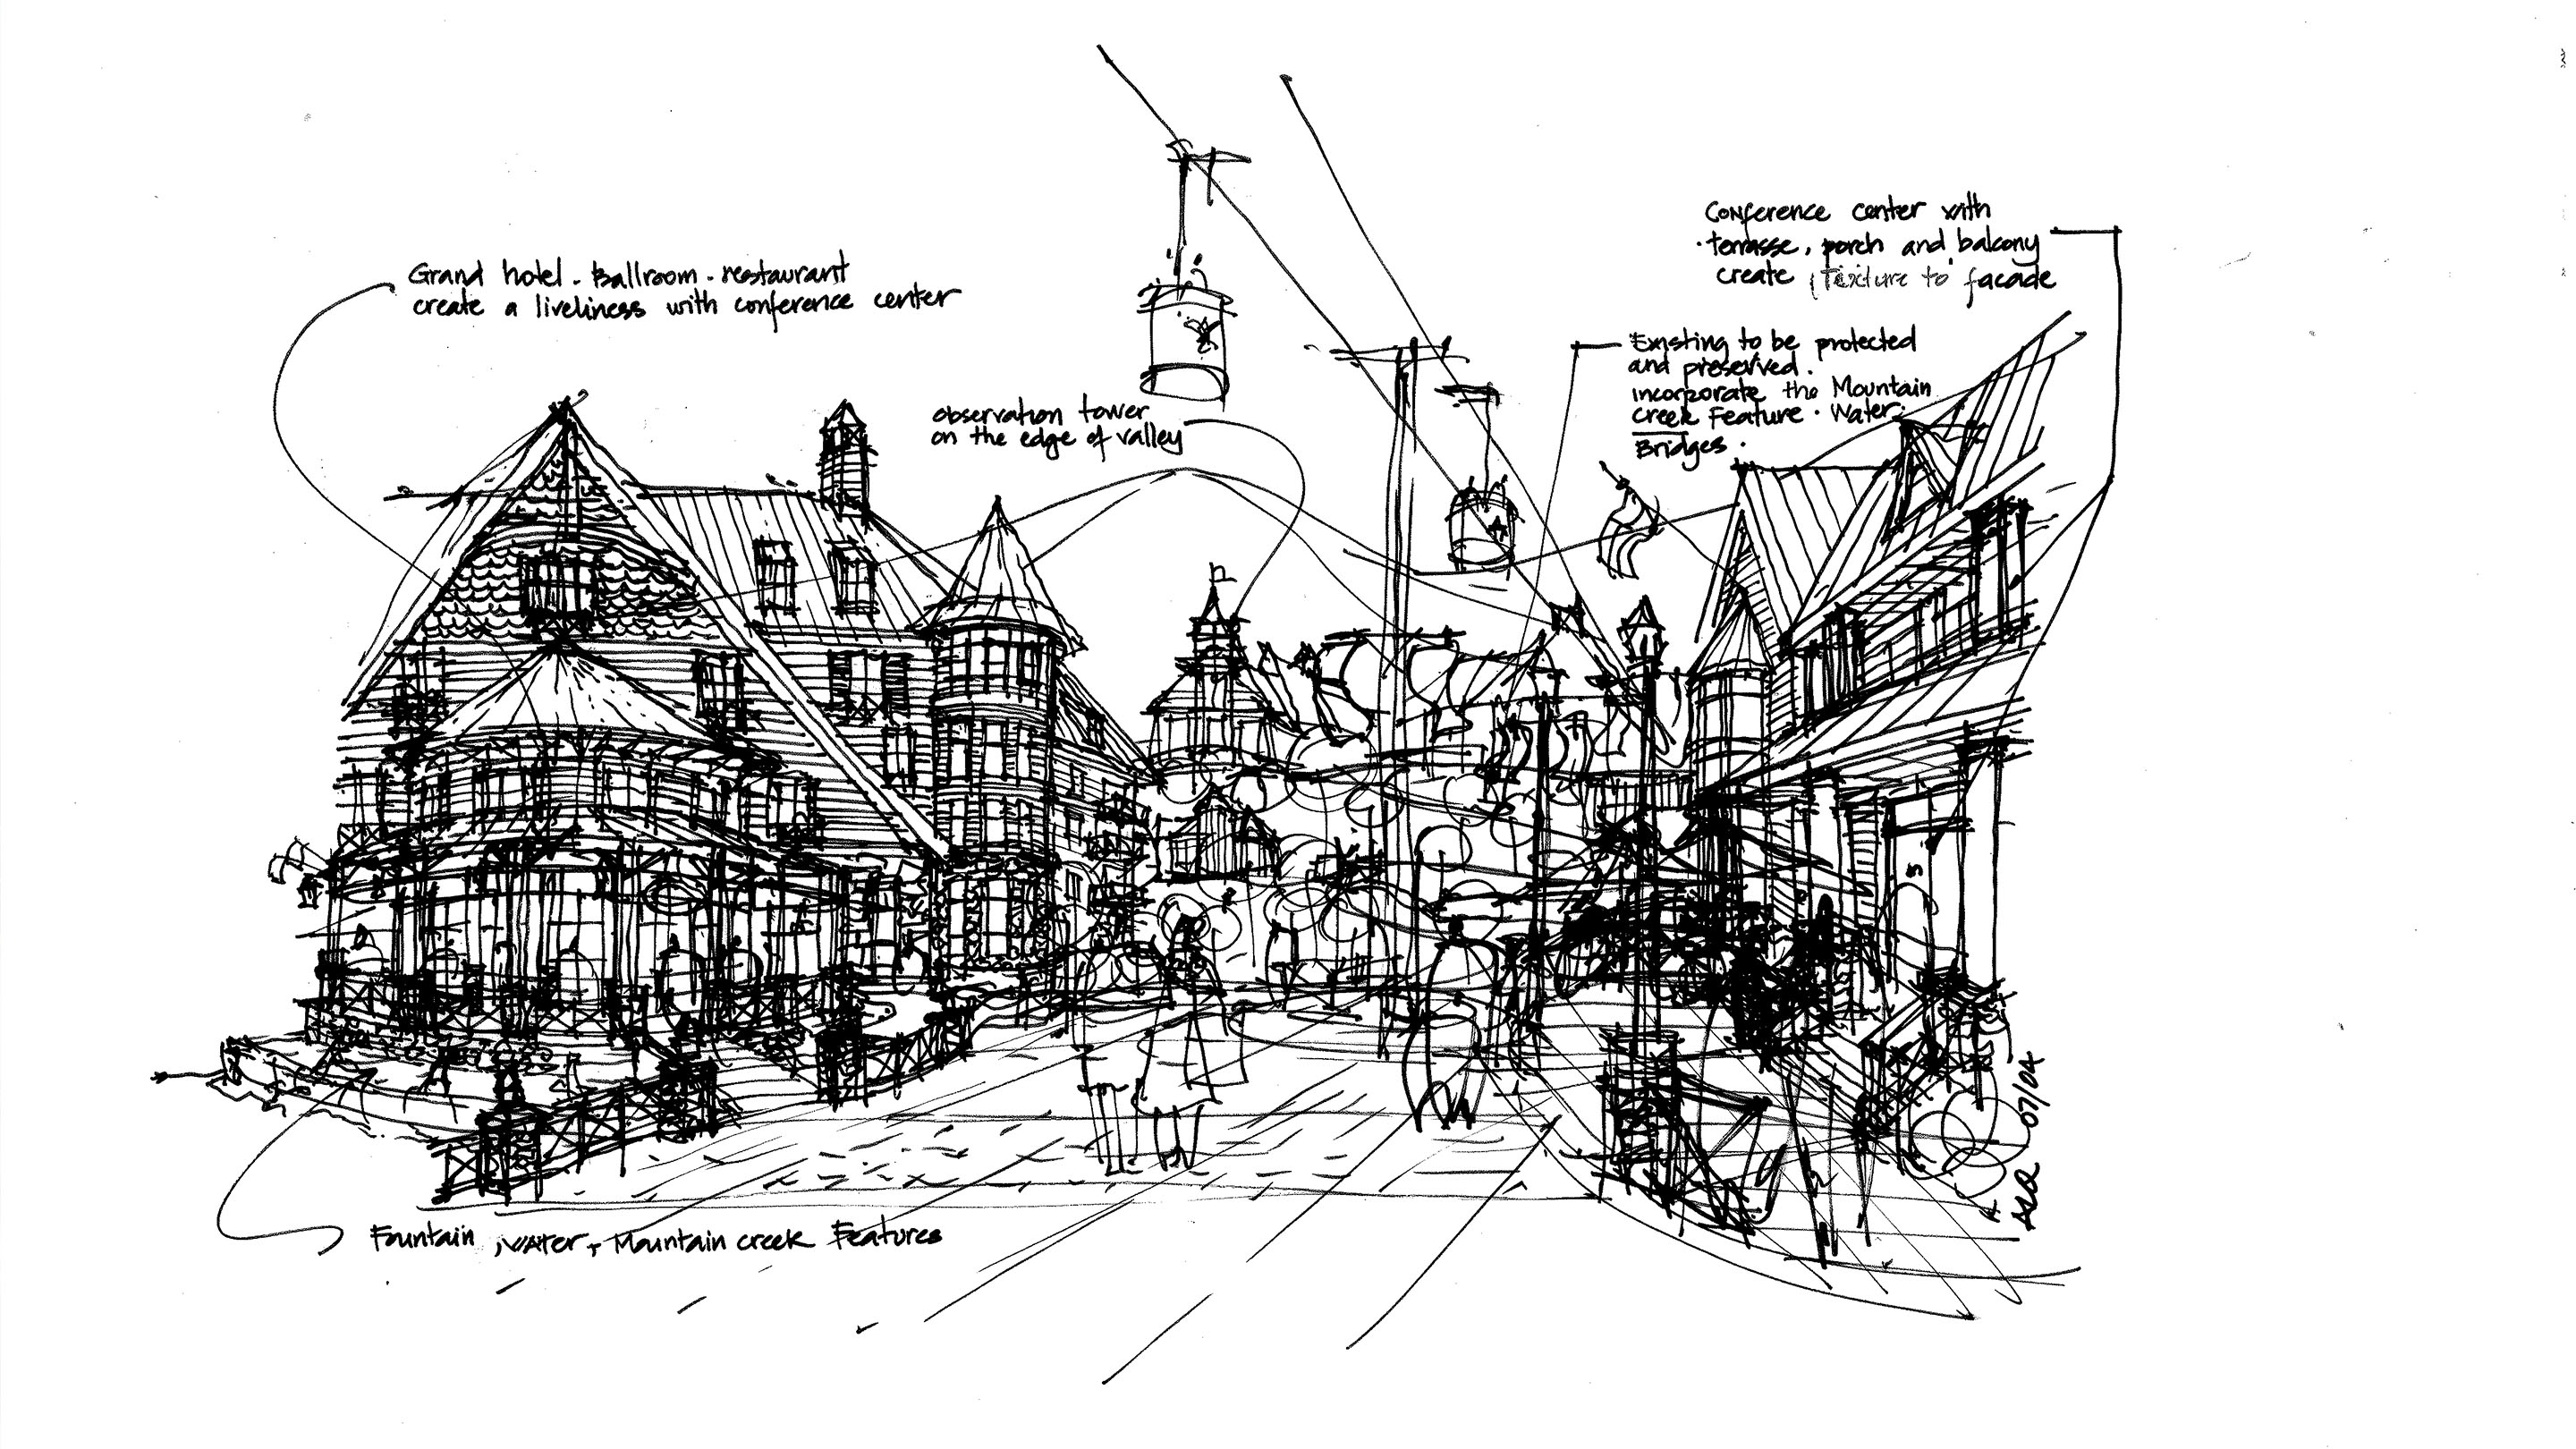 Conference center with
terrasse, porch and balcony
create texture to facade
Grand hotel - Ballroom - restaurant
create a liveliness with conference center
Existing to be protected
and preserved.
incorporate the Mountain
creek Feature · Water
Bridges.
observation tower
on the edge of valley
Fountain, water, Mountain creek Features
07/04